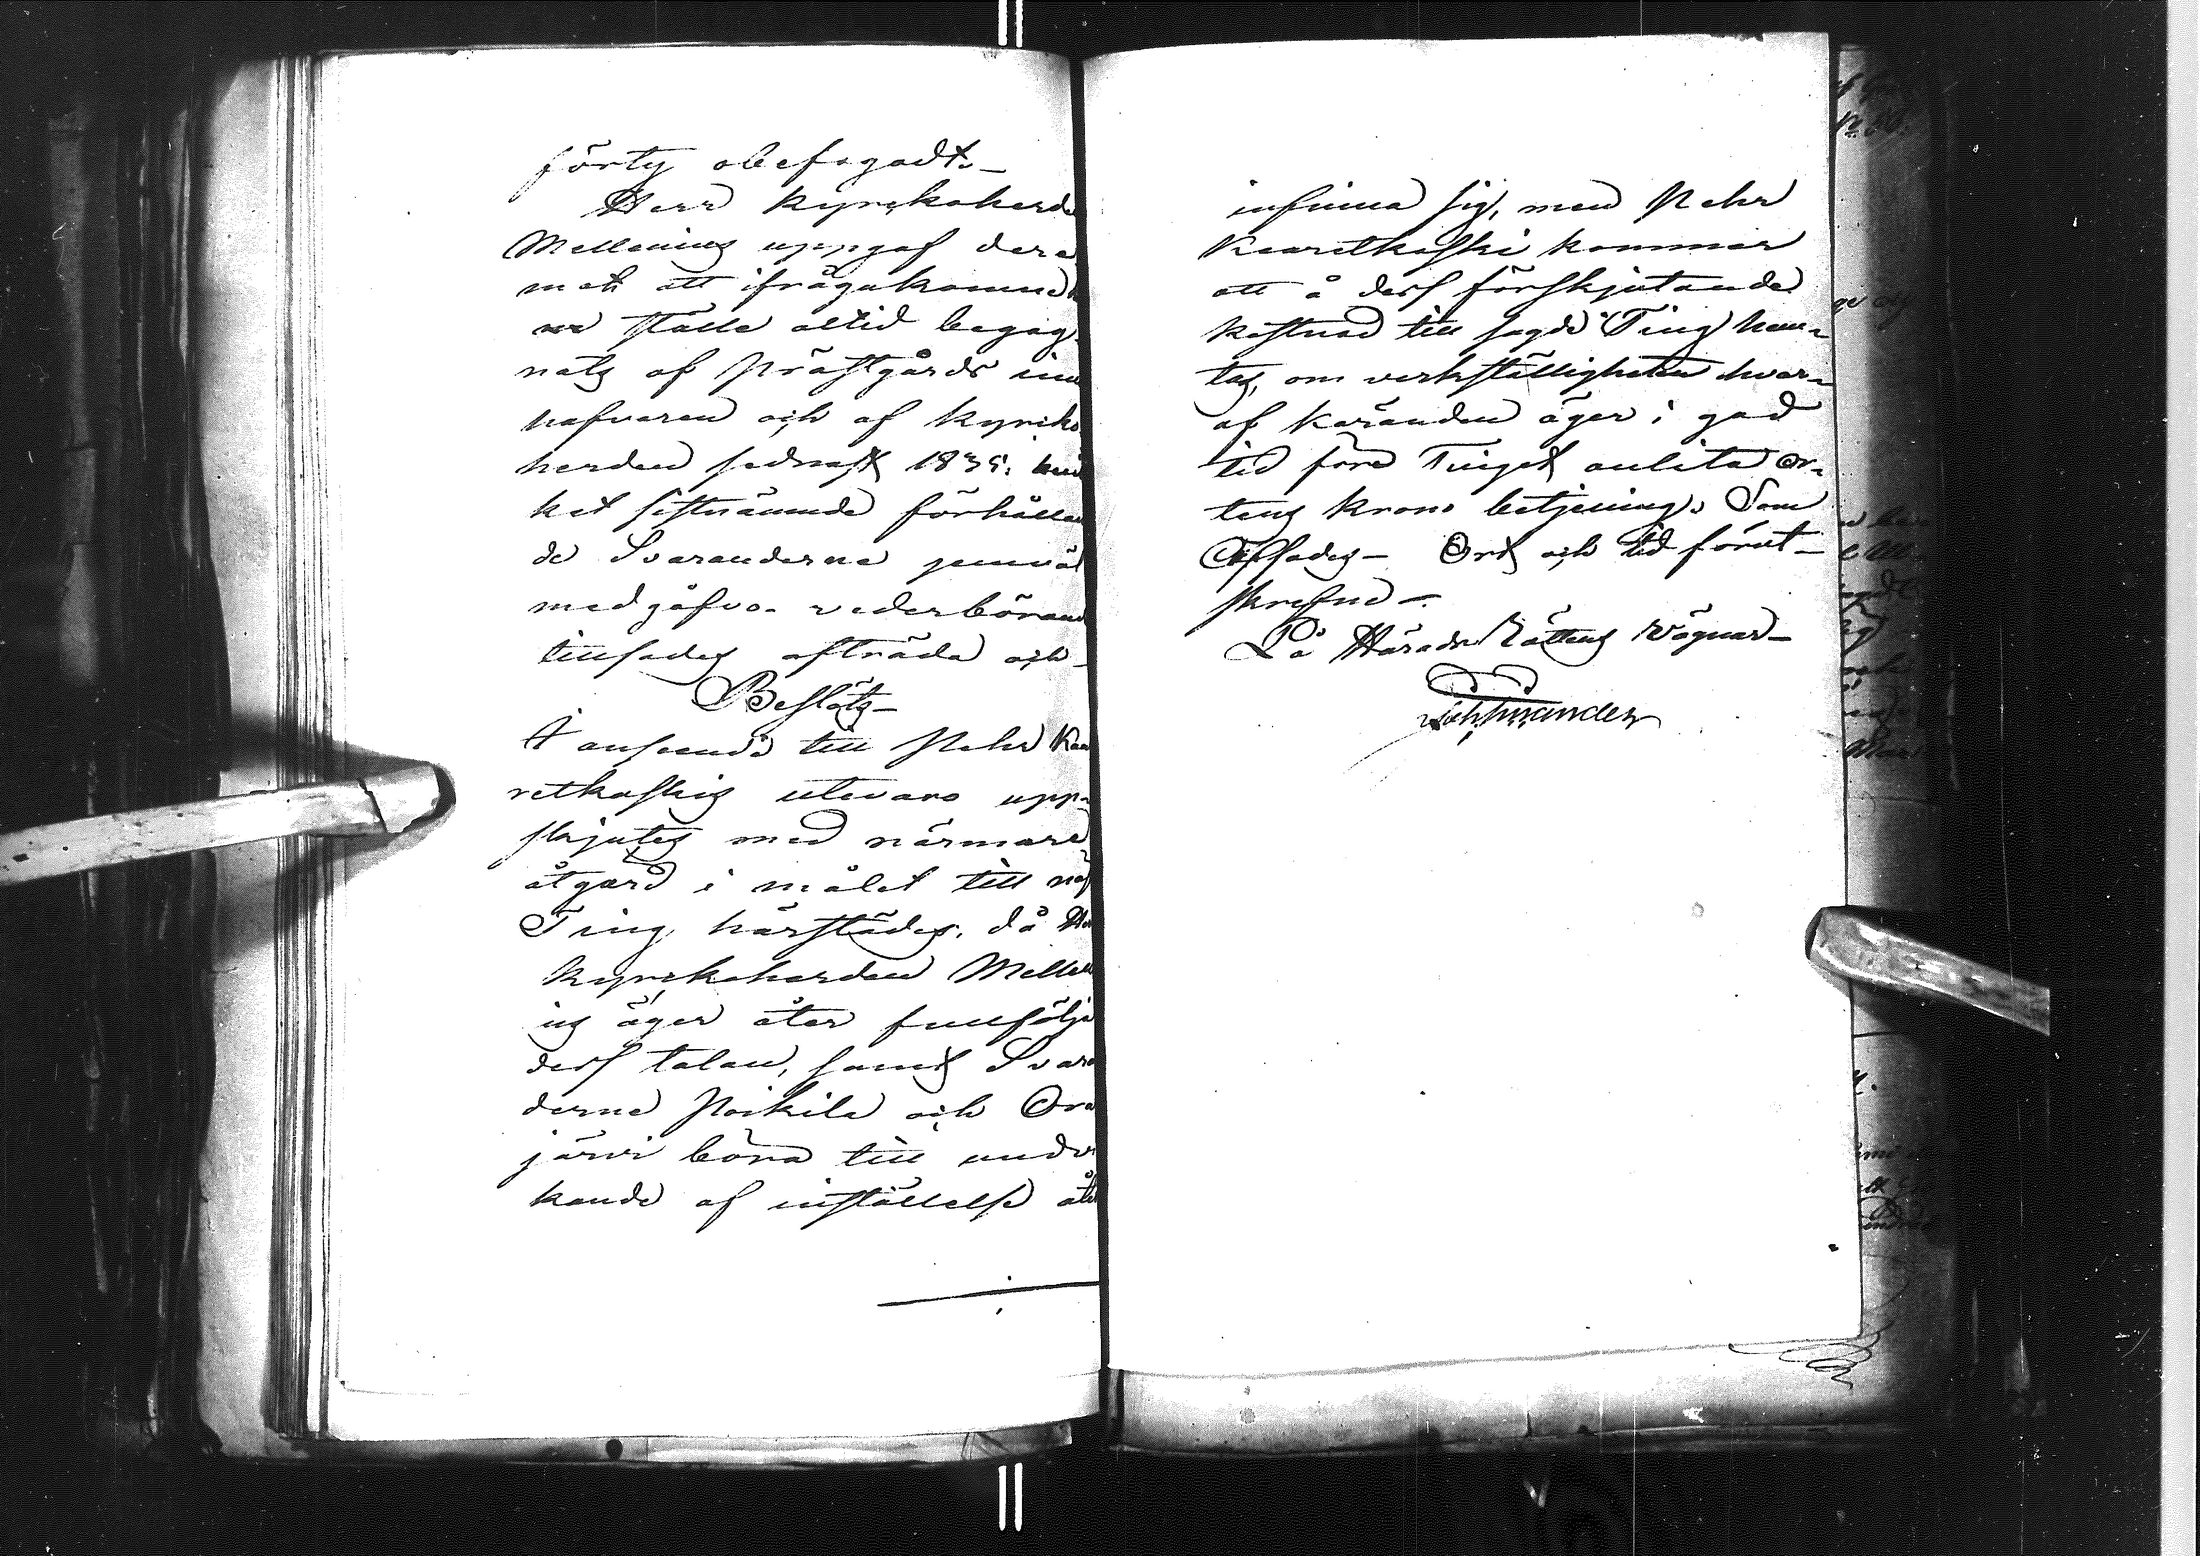 förty obefogadt.
Herr Kyrckoherde
Mellenius uppgaf dere
mot att ifrågakomne
ställe altid begag-
nats af Prästgårds inne
hafvaren och af Kyrcko
herden sednast 1835. hvil
ket sistnämnde förhållan
de Svaranderne jemväl
medgåfvo. vederbörande
tillsades afträda och
Beslöts
I anseende till Pehr Kaa
retkoskis utevaro upp-
skjutes med närmare
åtgärd i målet till näs
Ting härstädes, då Her
Kyrckoherden Mellen
ius äger åter fullfölja
dess talan, samt Svaran
derne Poikila och Ora
järvi böra till undvi
kande af inställelse åter

infinna sig, men Pehr
Kaaretkoski kommer
att å dess förskjutande
kostnad till sagde Ting häm-
tas, om verkställigheten hvar-
af Käranden äger i god
tid före Tinget anlita Or-
tens krono betjening. Som
Afsades. Ort och tid förut-
skrefne.
På Härads Rättens Vägnar